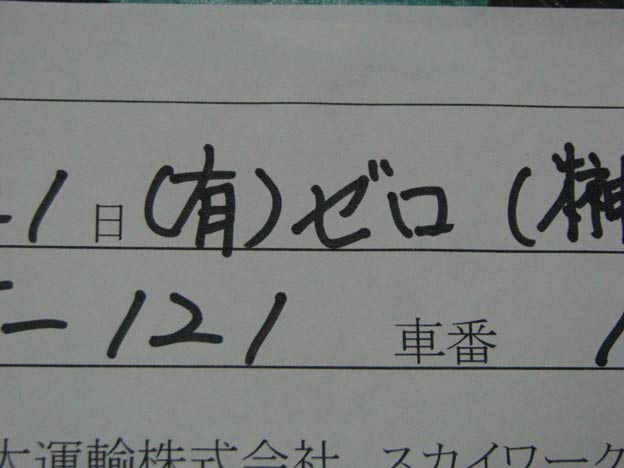 1日(有)ゼロ(榊
-121 車番 1
大運輸株式会社 スカイワーク